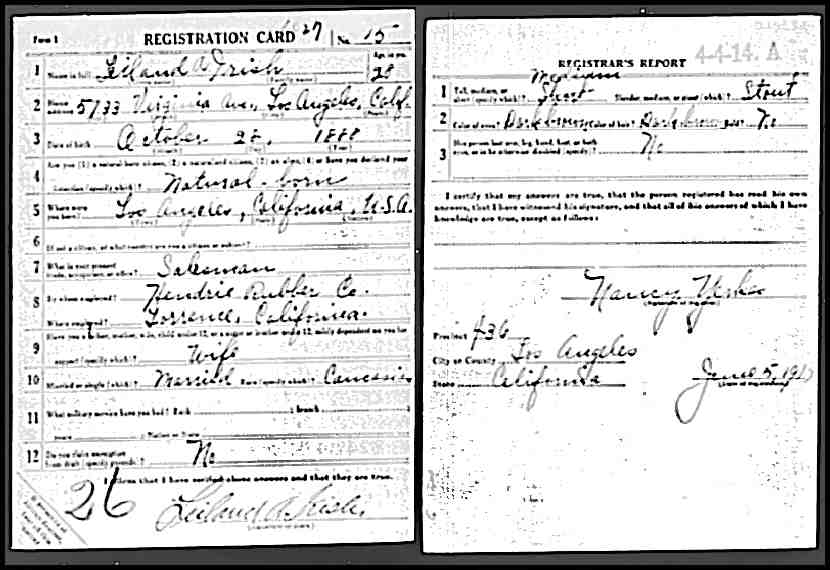 Form 1 REGISTRATION CARD No. 15
1 Name in full Leiland A Irish Age in yrs. 28
2 Home address 5733 Virginia Ave., Los Angeles, Calif.
3 Date of birth October 28, 1888
4 Are you (1) a natural-born citizen, (2) a naturalized citizen, (3) an alien, (4) or have you declared your
intention (specify which)? Natural-born
5 Where were you born? Los Angeles, California, U.S.A.
6 If not a citizen, of what country are you a citizen or subject?
7 What is your present trade, occupation, or office? Salesman
8 By whom employed? Hendrie Rubber Co.
Where employed? Torrence, California.
9 Have you a father, mother, wife, child under 12, or a sister or brother under 12, solely dependent on you for
support (specify which)? Wife
10 Married or single (which)? Married Race (specify which)? Caucasian
11 What military service have you had? Rank branch
years Nation or State
12 Do you claim exemption from draft (specify grounds)? No
I affirm that I have verified above answers and that they are true.
26 Leiland A Irish.
REGISTRAR'S REPORT 4-4-14. A
Medium
1 Tall, medium, or short (specify which)? Short Slender, medium, or stout (which)? Stout
2 Color of eyes? Dark brown Color of hair? Dark brown Bald? No
3 Has person lost arm, leg, hand, foot, or both eyes, or is he otherwise disabled (specify)? No
I certify that my answers are true, that the person registered has read his own
answers, that I have witnessed his signature, and that all of his answers of which I have
knowledge are true, except as follows:
Nancy
Precinct 436
City or County Los Angeles
State California June 5, 1917